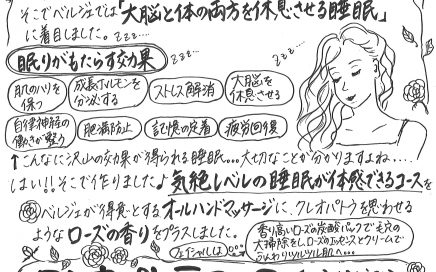 そこでベルジェでは「大脳と体の両方を休息させる睡眠」
に着目しました。zzz...
zzz...
zzz...
眠りがもたらす効果
肌のハリを
保つ
成長ホルモンを
分泌する
ストレス解消
大脳を
休息させる
自律神経の
働きが整う
肥満防止
記憶の定着
疲労回復
↑こんなに沢山の効果が得られる睡眠...大切なことが分かりますよね....
はい!!そこで作りました♪気絶レベルの睡眠が体感できるコースを
ベルジェが得意とするオールハンドマッサージに、クレオパトラを思わせる
ようなローズの香りをプラスしました。
香り高いローズの炭酸パックで毛穴の
大掃除をし、ローズのエッセンスとクリームで
うんわりツルツル肌へ...